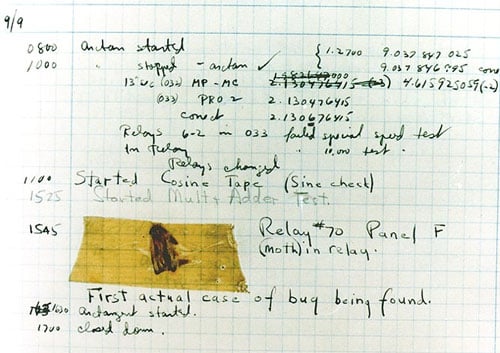 9/9
0800 Antan started { 1.2700 9.037 847 025
1000 " stopped - antan ✓ 9.037 846 995
(032) MP - MC 2.130476415 4.615925059(-2)
(033) PRO 2 2.130476415
conect 2.130676415
Relays 6-2 in 033 failed special speed test
In " 10,000 test .
Relays changed
1100 Started Cosine Tape (Sine check)
1525 Started Mult + Adder Test.
1545 Relay #70 Panel F
(moth) in relay.
First actual case of bug being found.
1630 antangent started.
1700 closed down .